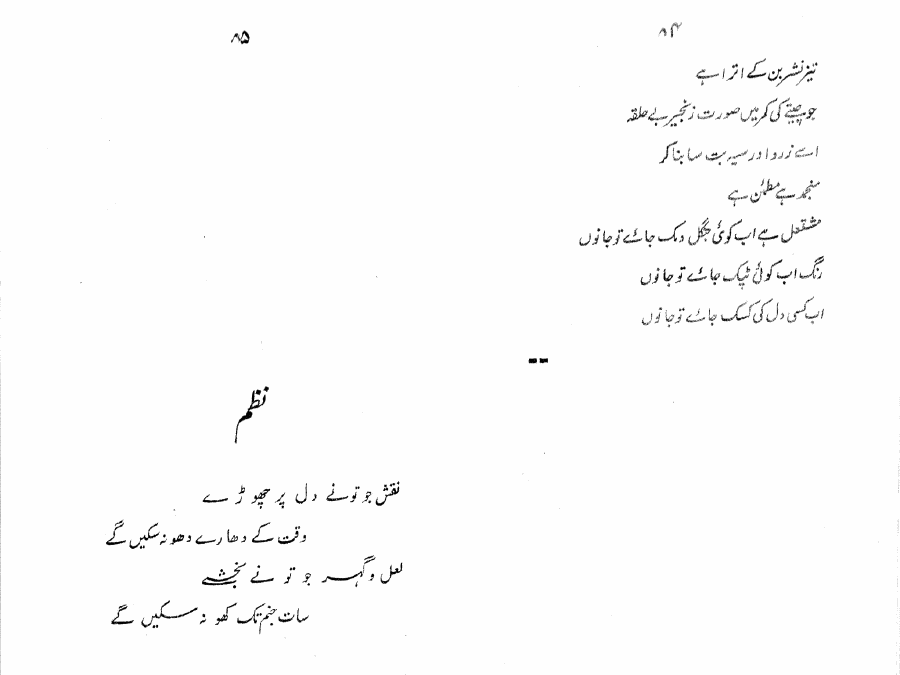 ۸۴
تیز نشر بن کے اترا ہے
جو چیتے کی کمر میں صورت زنجیر بے حلقہ
اسے زرد اور سیہ بت سا بنا کر
منجمد ہے مطمئن ہے
مشتعل ہے اب کوئی جنگل دمک جائے تو جانوں
رنگ اب کوئی ٹپک جائے تو جانوں
اب کسی دل کی کسک جائے تو جانوں
۸۵
نظم
نقش جو تو نے دل پر چھوڑے
وقت کے دھارے دھو نہ سکیں گے
لعل و گہر جو تو نے بخشے
سات جنم تک کھو نہ سکیں گے